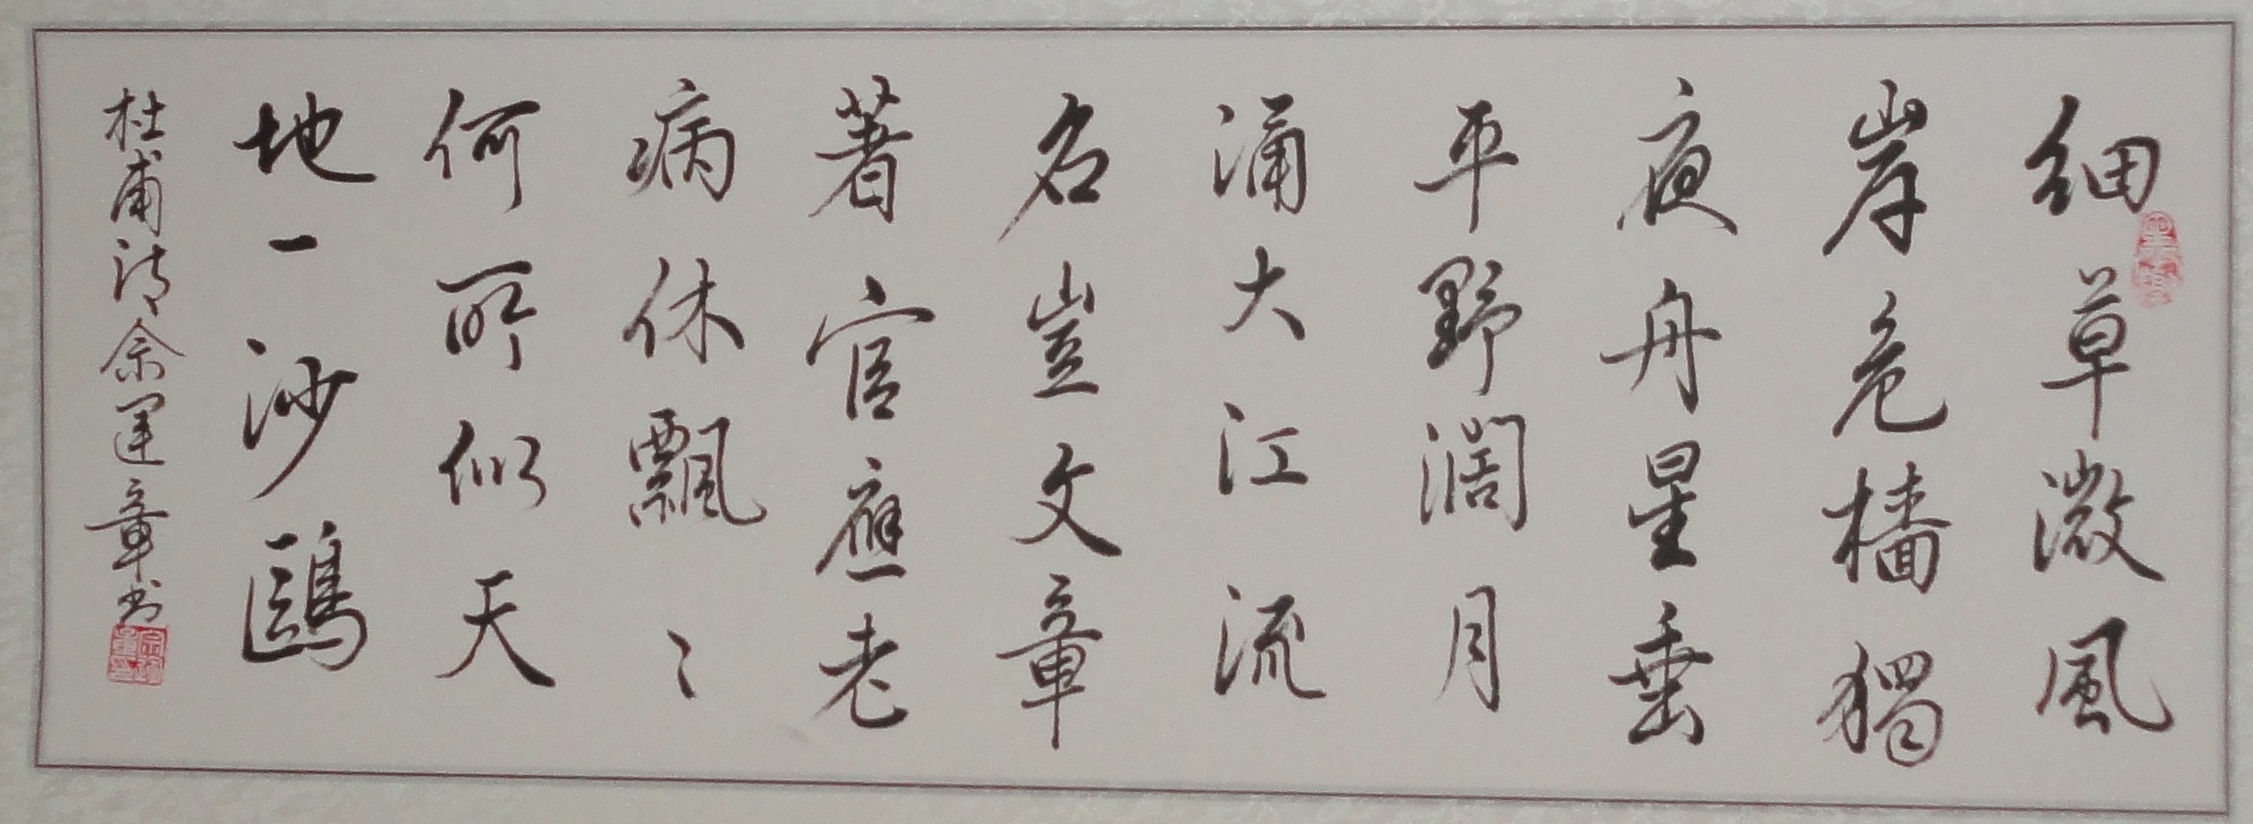 细草微风
岸危樯獨
夜舟星垂
平野濶月
涌大江流
名豈文章
著官應老
病休飄〻
何所似天
地一沙鷗
杜甫诗余運章书